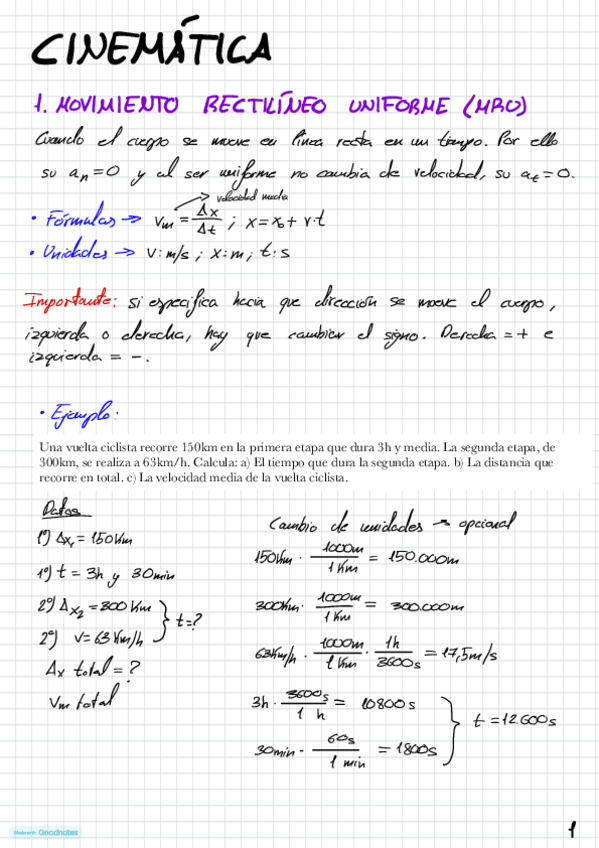 CINEMÁTICA
1. MOVIMIENTO RECTILÍNEO UNIFORME (MRU)
Cuando el cuerpo se mueve en línea recta en un tiempo. Por ello
su aₙ=0 y al ser uniforme no cambia de velocidad, su aₜ=0.
velocidad media
• Fórmulas → Vm = Δx/Δt ; x = x₀ + v·t
• Unidades → v: m/s ; x: m ; t: s
Importante: si especifica hacia que dirección se mueve el cuerpo,
izquierda o derecha, hay que cambiar el signo. Derecha = + e
izquierda = -.
• Ejemplo:
Una vuelta ciclista recorre 150km en la primera etapa que dura 3h y media. La segunda etapa, de
300km, se realiza a 63km/h. Calcula: a) El tiempo que dura la segunda etapa. b) La distancia que
recorre en total. c) La velocidad media de la vuelta ciclista.
Datos
1º) Δx₁ = 150 Km
1º) t = 3h y 30min
2º) Δx₂ = 300 Km
2º) v = 63 Km/h
t = ?
Δx total = ?
Vm total
Cambio de unidades → opcional
150Km · 1000m/1 Km = 150.000m
300Km · 1000m/1 Km = 300.000m
63Km/h · 1000m/1 Km · 1h/3600s = 17,5 m/s
3h · 3600s/1 h = 10800 s
30min · 60s/1 min = 1800s
t = 12.600s
Made with Goodnotes
1